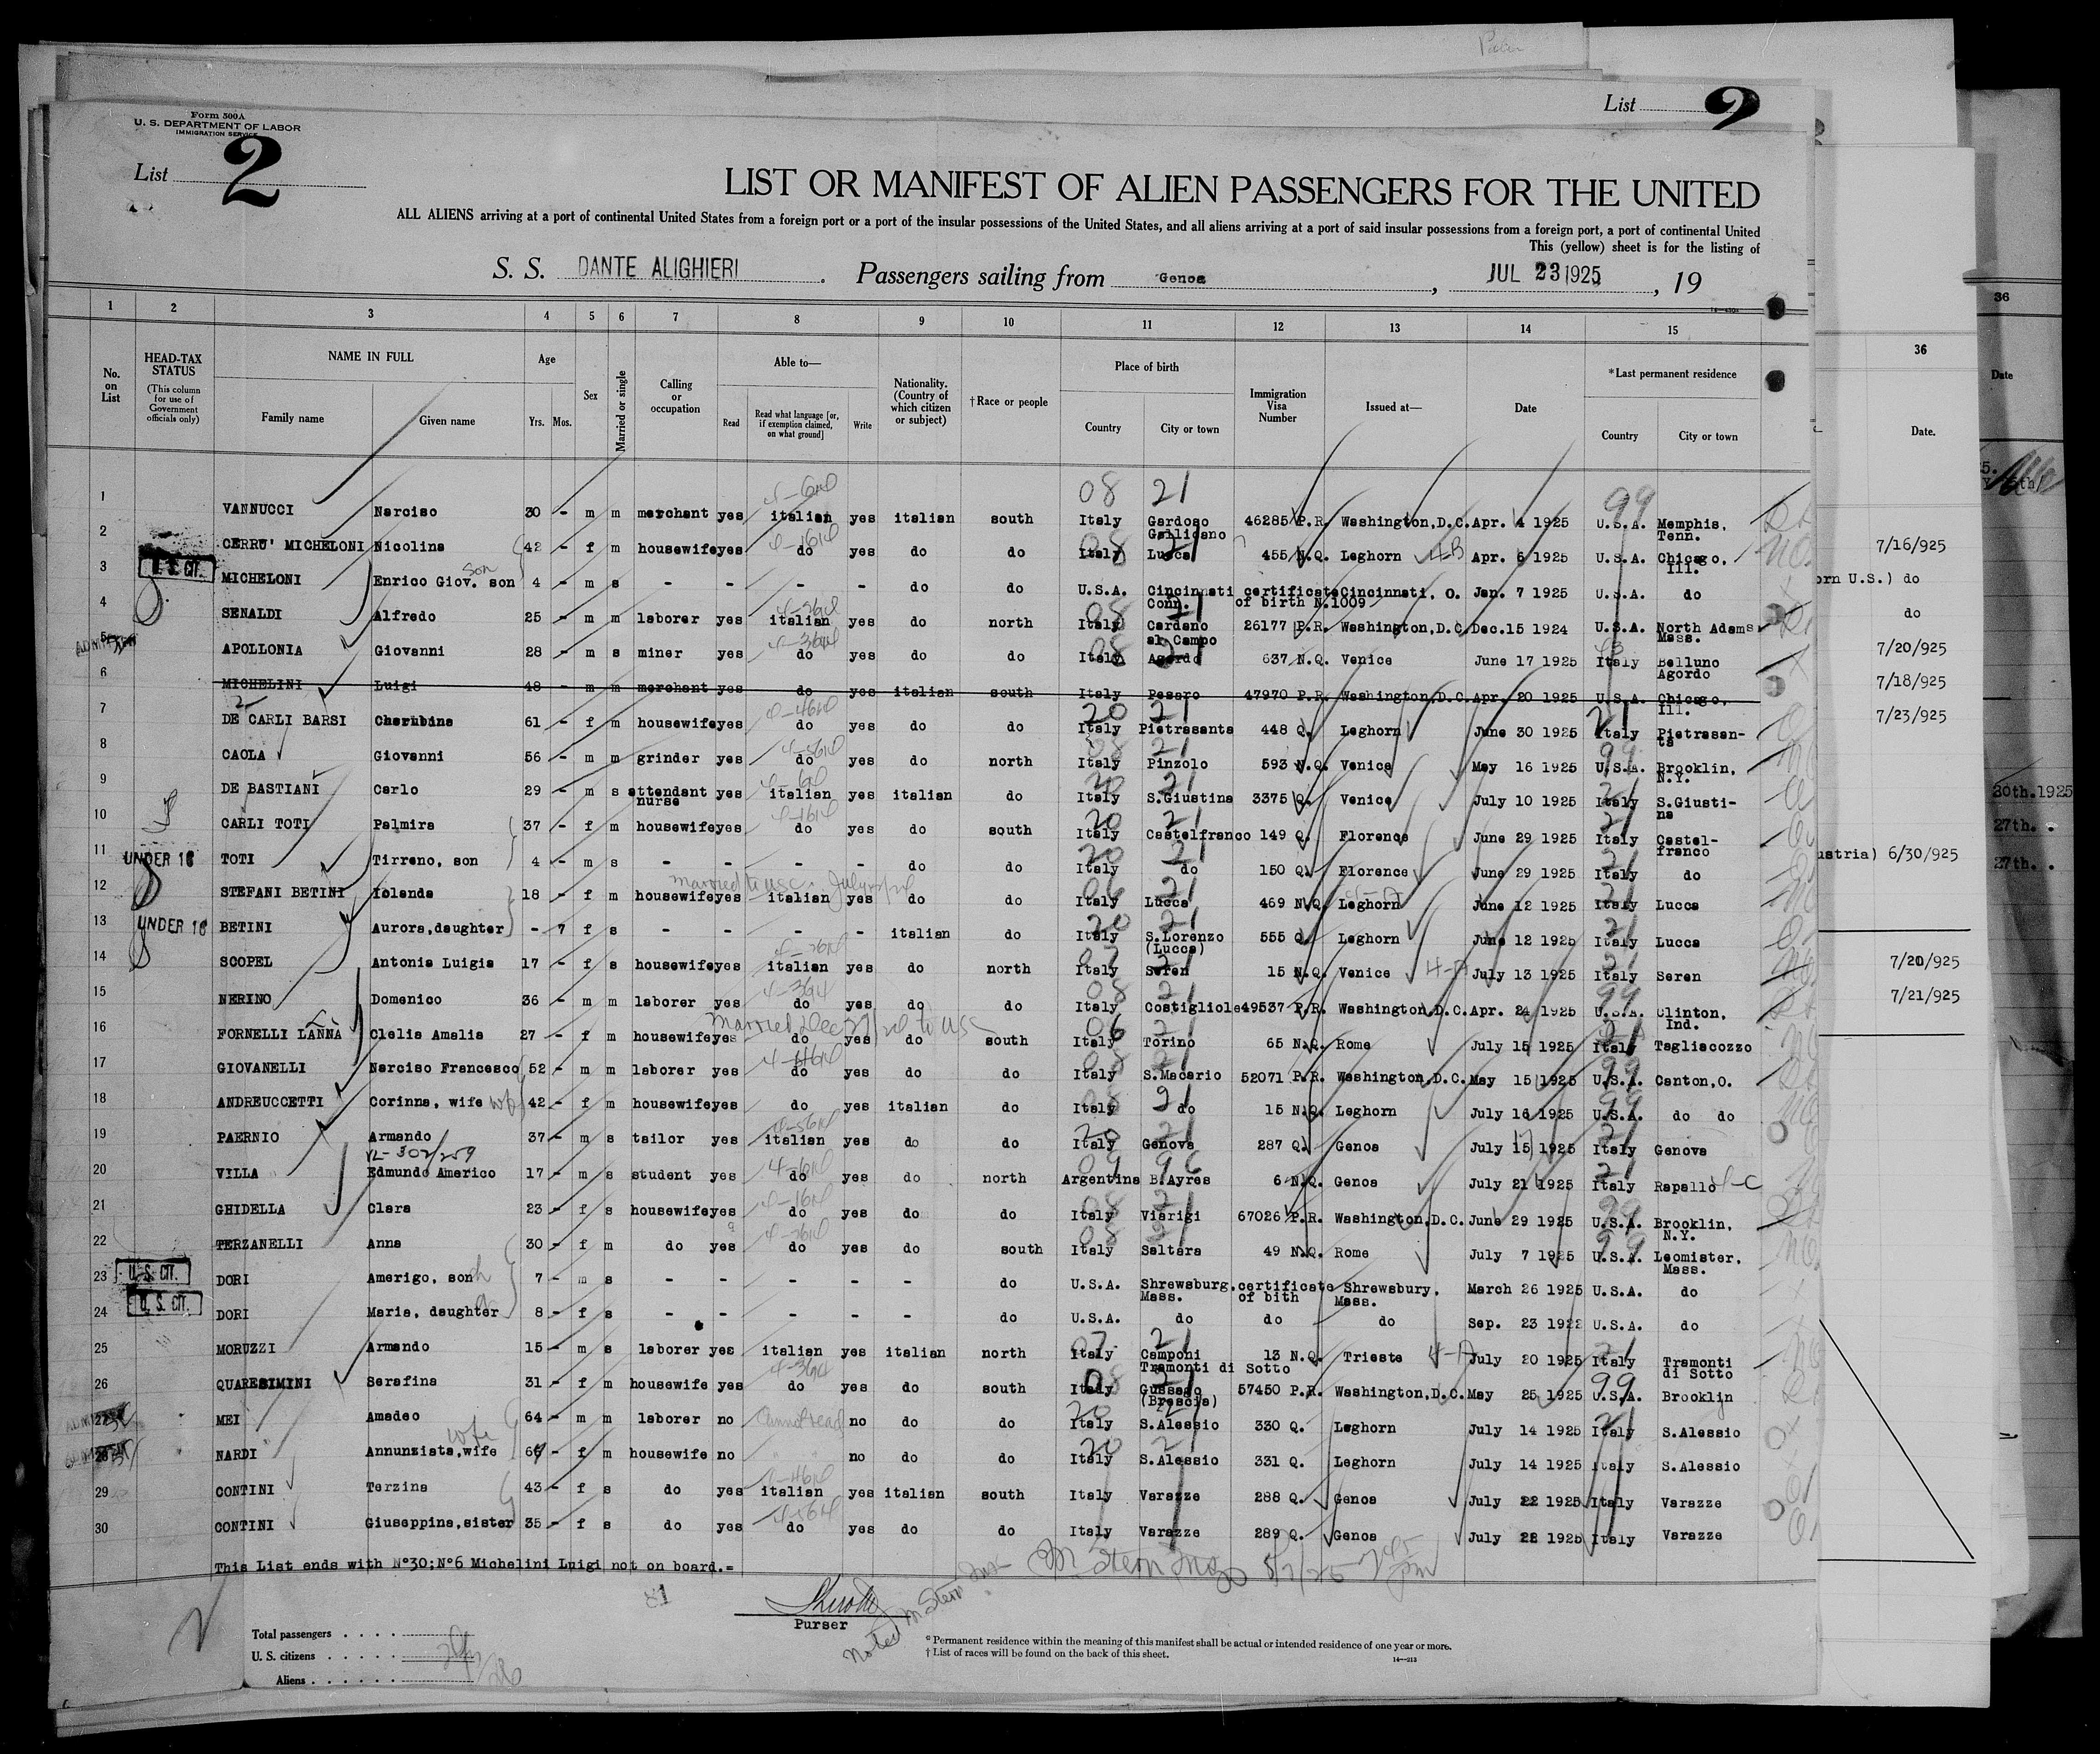 List 2
Form 500A
U. S. DEPARTMENT OF LABOR
IMMIGRATION SERVICE
List 2
LIST OR MANIFEST OF ALIEN PASSENGERS FOR THE UNITED
ALL ALIENS arriving at a port of continental United States from a foreign port or a port of the insular possessions of the United States, and all aliens arriving at a port of said insular possessions from a foreign port, a port of continental United
This (yellow) sheet is for the listing of
S. S. DANTE ALIGHIERI. Passengers sailing from Genoa, JUL 23 1925, 19
1 2 3 4 5 6 7 8 9 10 11 12 13 14 15
No. on List
HEAD-TAX STATUS (This column for use of Government officials only)
NAME IN FULL
Family name Given name
Age Yrs. Mos.
Sex
Married or single
Calling or occupation
Able to—
Read Read what language [or, if exemption claimed, on what ground] Write
Nationality. (Country of which citizen or subject)
†Race or people
Place of birth
Country City or town
Immigration Visa Number
Issued at—
Date
*Last permanent residence
Country City or town
36
Date.
36
Date
1 VANNUCCI Narciso 30 - m m merchant yes italian yes italian south Italy Gardoso Gallicano 46285 P.R. Washington,D.C. Apr. 4 1925 U.S.A. Memphis, Tenn.
2 CERRU' MICHELONI Nicolina 42 - f m housewife yes do yes do do Italy Lucca 455 N.Q. Leghorn 4-B Apr. 6 1925 U.S.A. Chicago, Ill. 7/16/925
3 U.S. CIT. MICHELONI Enrico Giov. son 4 - m s - - - - do do U.S.A. Cincinnati Conn. certificate of birth N.1009 Cincinnati, O. Jan. 7 1925 U.S.A. do orn U.S.) do
4 SENALDI Alfredo 25 - m m laborer yes italian yes do north Italy Cardano al Campo 26177 P.R. Washington,D.C. Dec.15 1924 U.S.A. North Adams Mass. do
5 APOLLONIA Giovanni 28 - m s miner yes do yes do do Italy Agordo 637 N.Q. Venice June 17 1925 Italy Belluno Agordo 7/20/925
6 MICHELINI Luigi 48 - m m merchant yes do yes italian south Italy Pesaro 47970 P.R. Washington,D.C. Apr. 20 1925 U.S.A. Chicago, Ill. 7/18/925
7 DE CARLI BARSI Cherubina 61 - f m housewife yes do yes do do Italy Pietrasanta 448 Q. Leghorn June 30 1925 Italy Pietrasan- ta 7/23/925
8 CAOLA Giovanni 56 - m m grinder yes do yes do north Italy Pinzolo 593 N.Q. Venice May 16 1925 U.S.A. Brooklin, N.Y.
9 DE BASTIANI Carlo 29 - m s attendant nurse yes italian yes italian do Italy S.Giustina 3375 Q. Venice July 10 1925 Italy S.Giusti- na 30th.1925
10 CARLI TOTI Palmira 37 - f m housewife yes do yes do south Italy Castelfranco 149 Q. Florence June 29 1925 Italy Castel- franco 27th.
11 UNDER 16 TOTI Tirreno, son 4 - m s - - - - do do Italy do 150 Q. Florence June 29 1925 Italy do ustria) 6/30/925 27th.
12 STEFANI BETINI Iolanda 18 - f m housewife yes italian yes do do Italy Lucca 469 N.Q. Leghorn June 12 1925 Italy Lucca
13 UNDER 16 BETINI Aurora,daughter - 7 f s - - - - italian do Italy S.Lorenzo (Lucca) 555 Q. Leghorn June 12 1925 Italy Lucca
14 SCOPEL Antonia Luigia 17 - f s housewife yes italian yes do north Italy Seren 15 N.Q. Venice July 13 1925 Italy Seren 7/20/925
15 NERINO Domenico 36 - m m laborer yes do yes do do Italy Costigliole 49537 P.R. Washington,D.C. Apr. 24 1925 U.S.A. Clinton, Ind. 7/21/925
16 FORNELLI LANNA Clelia Amalia 27 - f m housewife yes do yes do south Italy Torino 65 N.Q. Rome July 15 1925 Italy Tagliacozzo
17 GIOVANELLI Narciso Francesco 52 - m m laborer yes do yes do do Italy S.Macario 52071 P.R. Washington,D.C. May 15 1925 U.S.A. Canton,O.
18 ANDREUCCETTI Corinna, wife 42 - f m housewife yes do yes italian do Italy do 15 N.Q. Leghorn July 16 1925 U.S.A. do do
19 PAERNIO Armando 37 - m s tailor yes italian yes do do Italy Genova 287 Q. Genoa July 15 1925 Italy Genova
20 VILLA Edmundo Americo 17 - m s student yes do yes do north Argentina B.Ayres 6 N.Q. Genoa July 21 1925 Italy Rapallo 4-C
21 GHIDELLA Clara 23 - f s housewife yes do yes do do Italy Viarigi 67026 P.R. Washington,D.C. June 29 1925 U.S.A. Brooklin, N.Y.
22 TERZANELLI Anna 30 - f m do yes do yes do south Italy Saltara 49 N.Q. Rome July 7 1925 U.S.A. Leomister, Mass.
23 U.S. CIT. DORI Amerigo, son 7 - m s - - - - do U.S.A. Shrewsburg, Mass. certificate of bith Shrewsbury, Mass. March 26 1925 U.S.A. do
24 U.S. CIT. DORI Maria, daughter 8 - f s - - - - do U.S.A. do do do Sep. 23 1922 U.S.A. do
25 MORUZZI Armando 15 - m s laborer yes italian yes italian north Italy Camponi Tramonti di Sotto 13 N.Q. Trieste 4-A July 20 1925 Italy Tramonti di Sotto
26 QUARESIMINI Serafina 31 - f m housewife yes do yes do south Italy Gussago (Brescia) 57450 P.R. Washington,D.C. May 25 1925 U.S.A. Brooklin
27 MEI Amadeo 64 - m m laborer no Cannot read no do do Italy S.Alessio 330 Q. Leghorn July 14 1925 Italy S.Alessio
28 NARDI Annunziata,wife - f m housewife no no do do Italy S.Alessio 331 Q. Leghorn July 14 1925 Italy S.Alessio
29 CONTINI Terzina 43 - f s do yes italian yes italian south Italy Varazze 288 Q. Genoa July 22 1925 Italy Varazze
30 CONTINI Giuseppina,sister 35 - f s do yes do yes do do Italy Varazze 289 Q. Genoa July 22 1925 Italy Varazze
This List ends with N°30;N°6 Michelini Luigi not on board.=
Purser
Total passengers
U. S. citizens
Aliens
* Permanent residence within the meaning of this manifest shall be actual or intended residence of one year or more.
† List of races will be found on the back of this sheet.
14—213